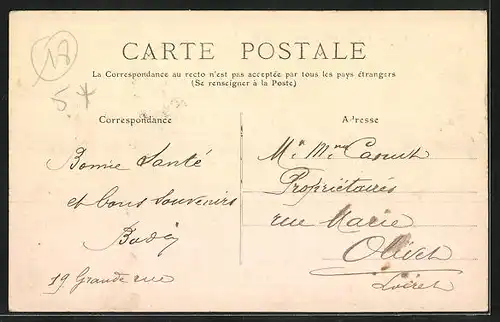 18
CARTE POSTALE
La Correspondance au recto n'est pas acceptée par tous les pays étrangers
(Se renseigner à la Poste)
Correspondance
Adresse
Bonne Santé
et bons souvenirs
19 Grande rue
M. Mme
Propriétaires
rue Marie
Olivet
Loiret